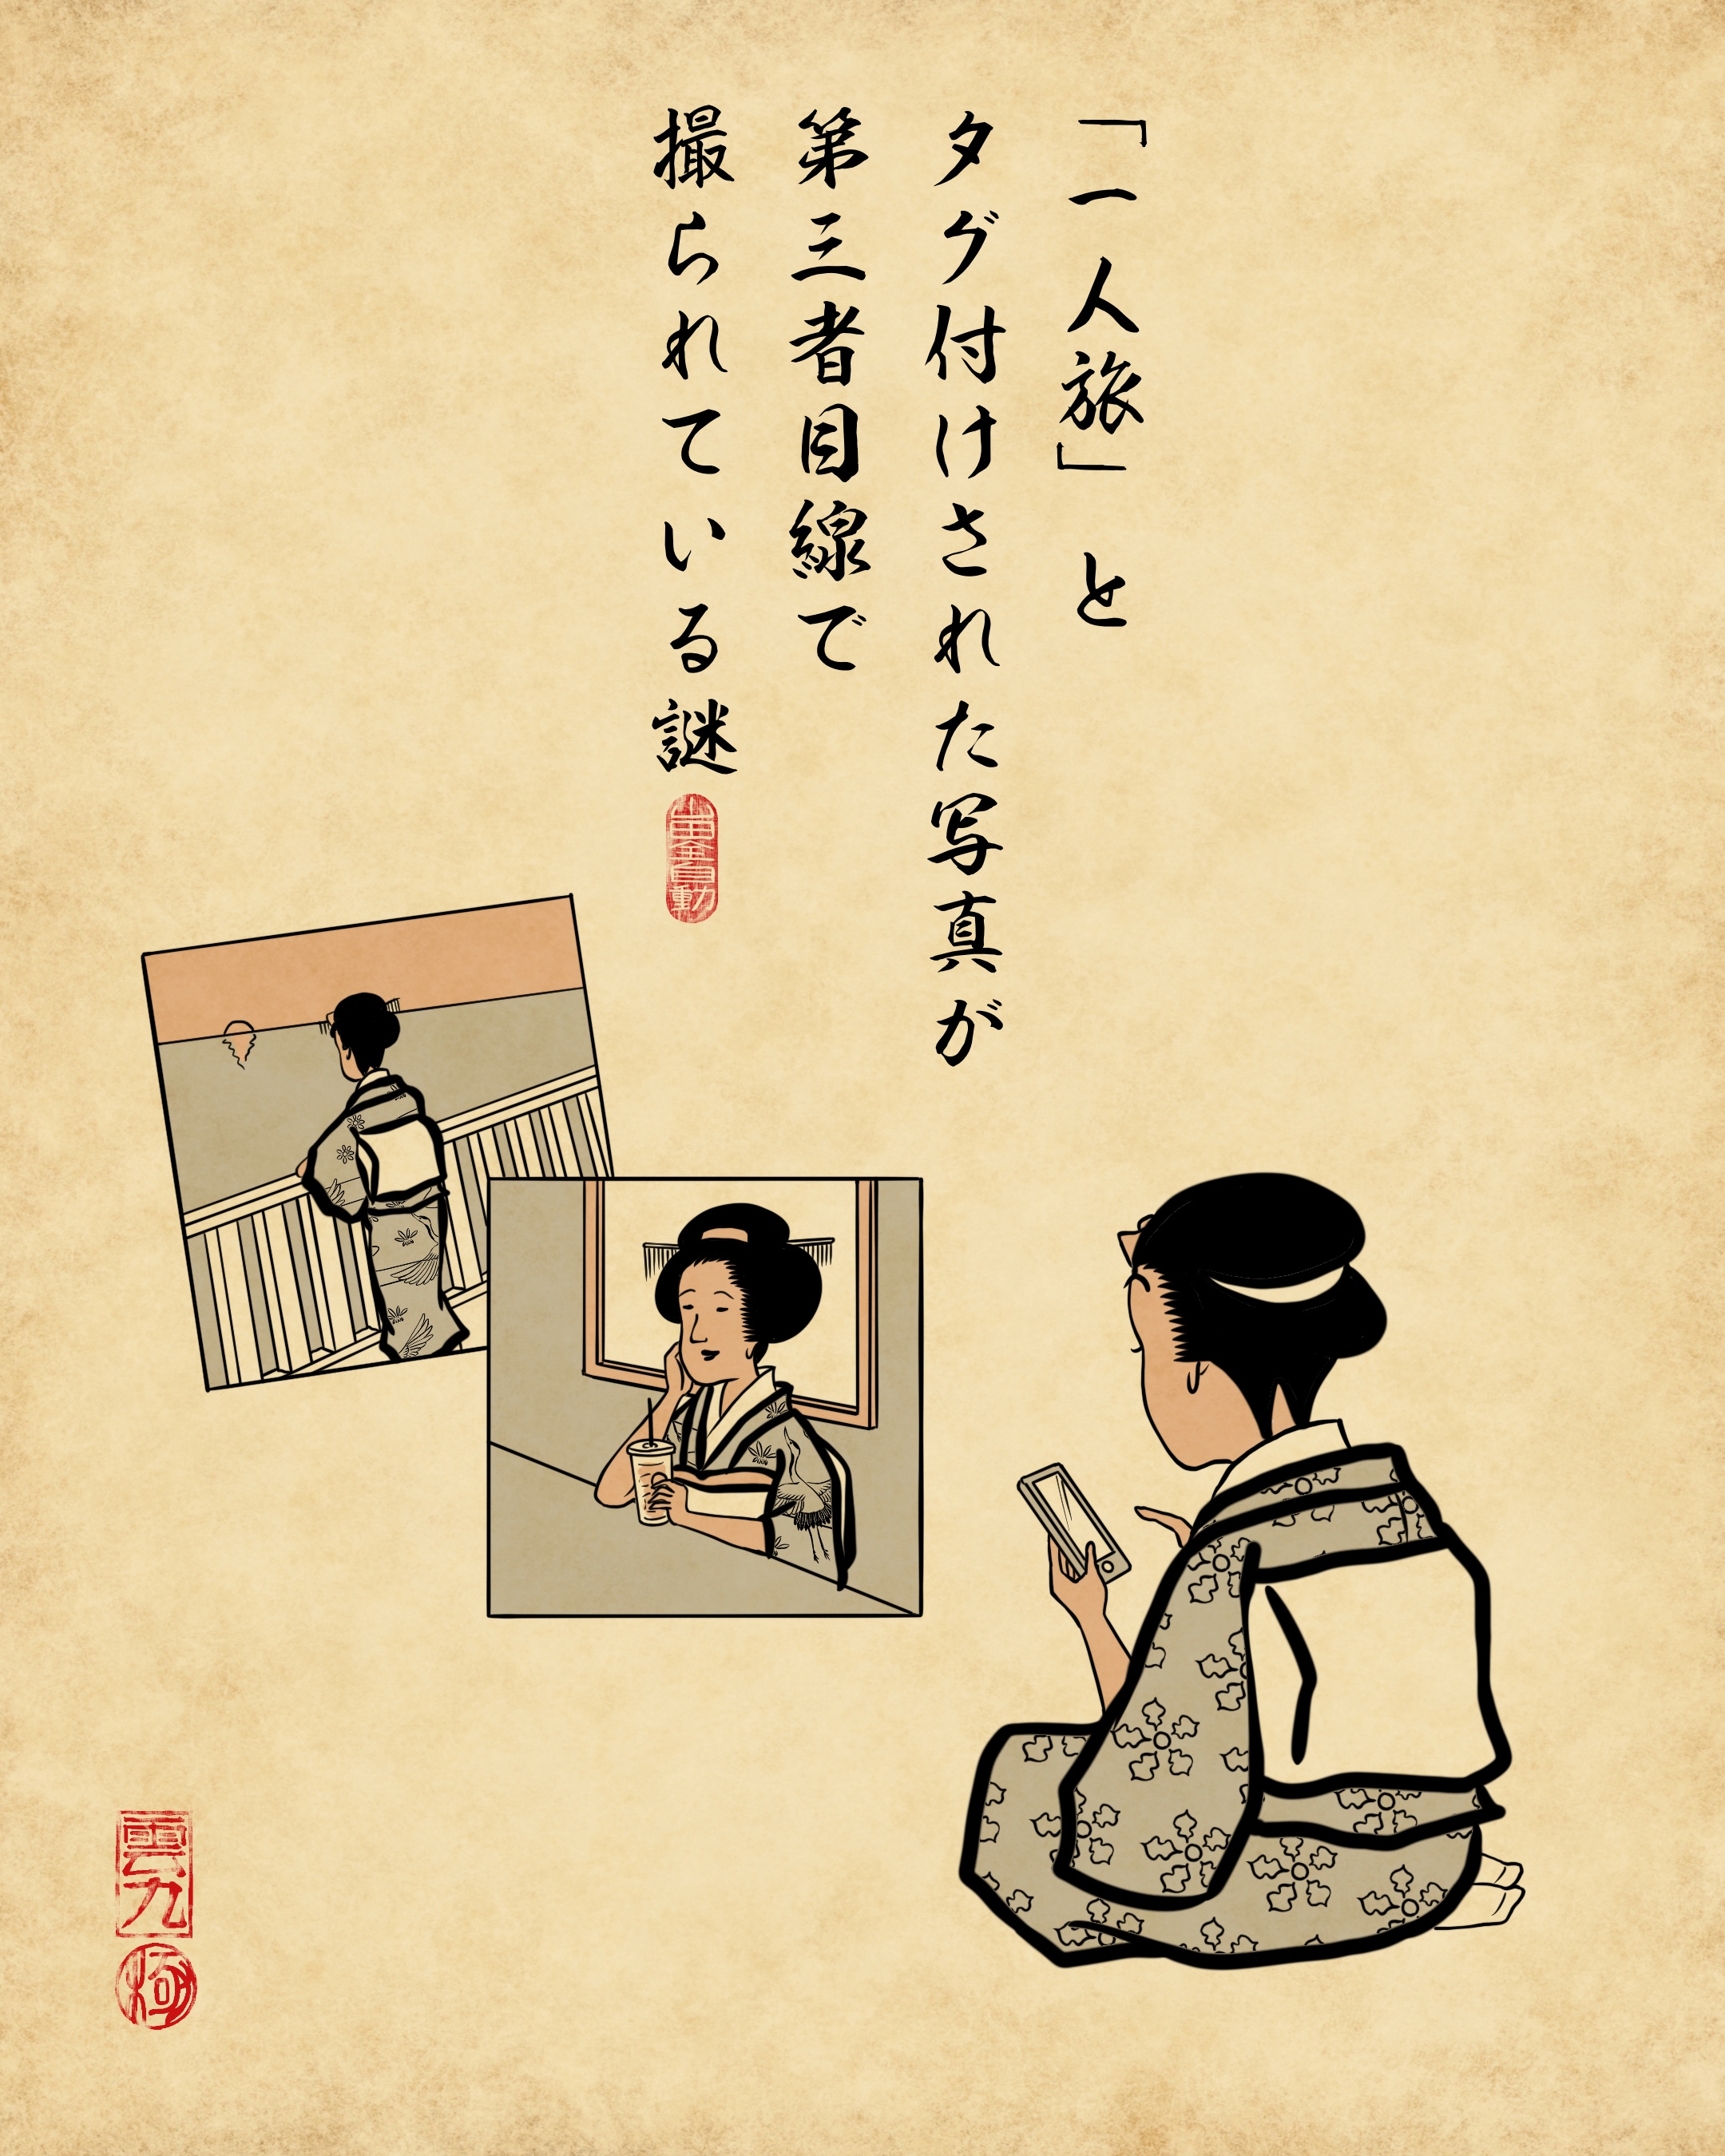 「一人旅」と
タグ付けされた写真が
第三者目線で
撮られている謎
山田全自動
雲九
極